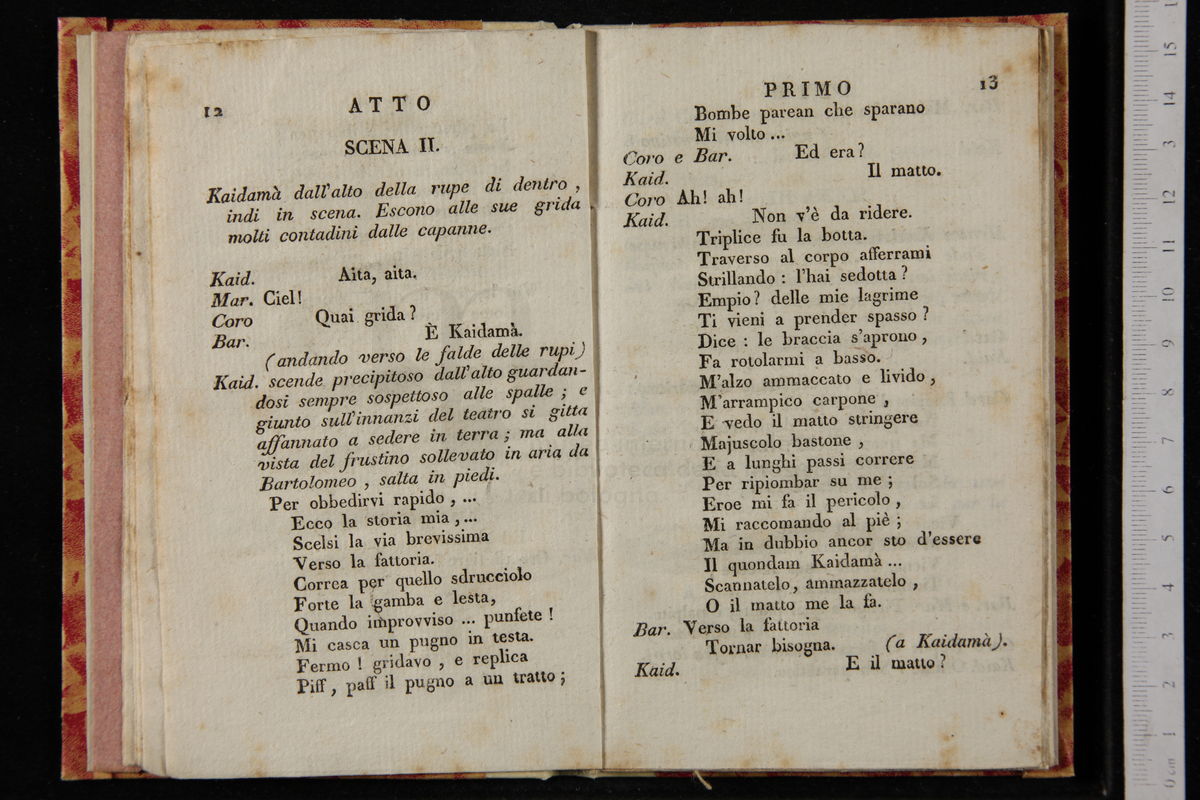 12
ATTO
SCENA II.
Kaidamà dall'alto della rupe di dentro ,
indi in scena. Escono alle sue grida
molti contadini dalle capanne.
Kaid. Aita, aita.
Mar. Ciel!
Coro Quai grida?
Bar. È Kaidamà.
(andando verso le falde delle rupi)
Kaid. scende precipitoso dall'alto guardan-
dosi sempre sospettoso alle spalle ; e
giunto sull'innanzi del teatro si gitta
affannato a sedere in terra ; ma alla
vista del frustino sollevato in aria da
Bartolomeo , salta in piedi.
Per obbedirvi rapido , ...
Ecco la storia mia , ...
Scelsi la via brevissima
Verso la fattoria.
Correa per quello sdrucciolo
Forte la gamba e lesta,
Quando improvviso ... punfete !
Mi casca un pugno in testa.
Fermo ! gridavo , e replica
Piff , paff il pugno a un tratto ;
PRIMO
13
Bombe parean che sparano
Mi volto ...
Coro e Bar. Ed era?
Kaid. Il matto.
Coro Ah! ah!
Kaid. Non v'è da ridere.
Triplice fu la botta.
Traverso al corpo afferrami
Strillando : l'hai sedotta ?
Empio? delle mie lagrime
Ti vieni a prender spasso ?
Dice : le braccia s'aprono ,
Fa rotolarmi a basso.
M'alzo ammaccato e livido ,
M'arrampico carpone ,
E vedo il matto stringere
Majuscolo bastone ,
E a lunghi passi correre
Per ripiombar su me ;
Eroe mi fa il pericolo ,
Mi raccomando al piè ;
Ma in dubbio ancor sto d'essere
Il quondam Kaidamà ...
Scannatelo, ammazzatelo ,
O il matto me la fa.
Bar. Verso la fattoria
Tornar bisogna. (a Kaidamà).
Kaid. E il matto ?
0 cm 1 2 3 4 5 6 7 8 9 10 11 12 13 14 15